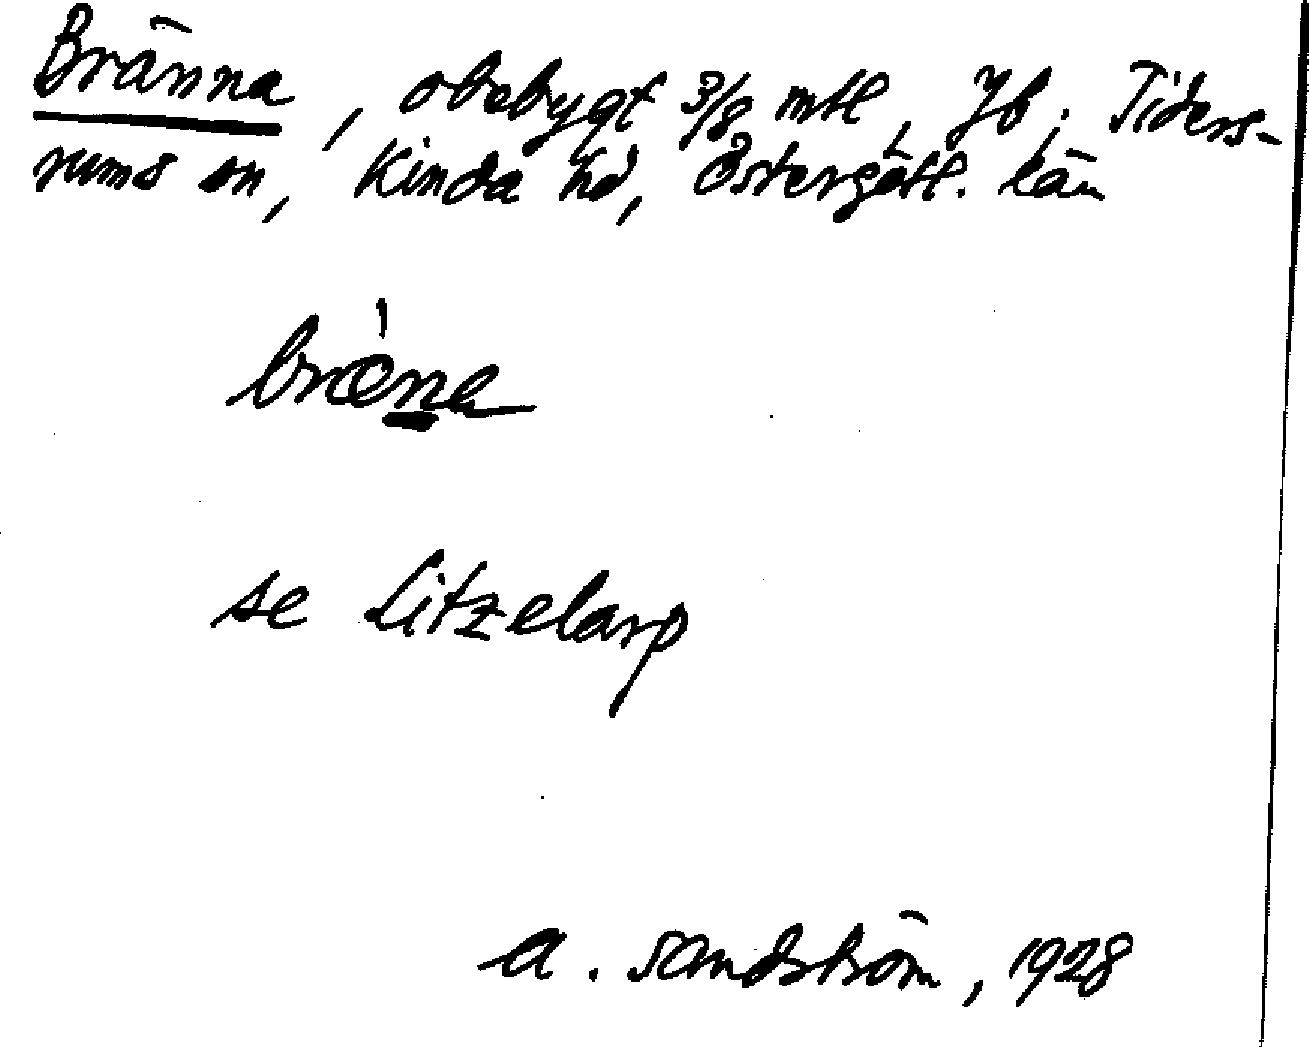 Bränna, obebygt 3/8 mtl, Jb; Tiders-
rums sn, Kinda hd, Östergötl. län
bræ̀na
se Litzelarp
A. Sandström, 1928